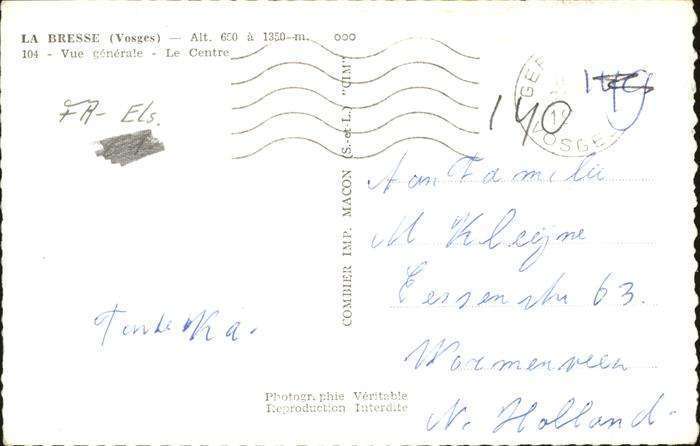 LA BRESSE (Vosges) — Alt. 650 à 1350 m. ooo
104 - Vue générale - Le Centre
FR- Els.
COMBIER IMP. MACON (S.-et-L.) "CIM"
GER
VOSGES
140
Aan Familie
M Kleyne
63.
Wormerveer
N. Holland
Photogr.phie Véritable
Reproduction Interdite